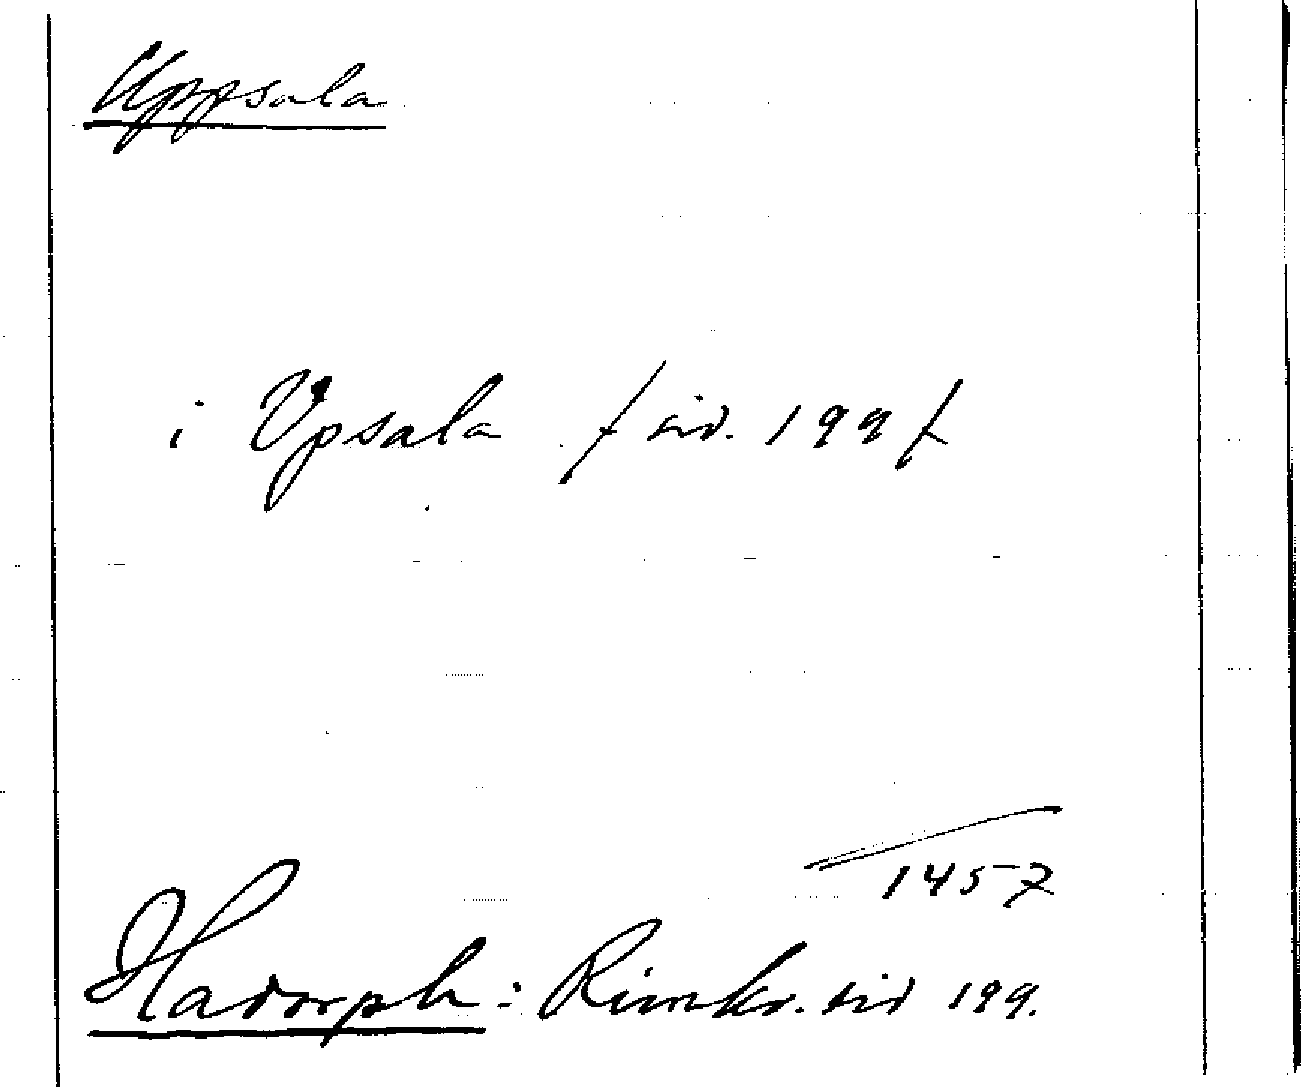 Uppsala
i Vpsala / sid. 199 /
1457
Hadorph: Rimkr. sid 199.